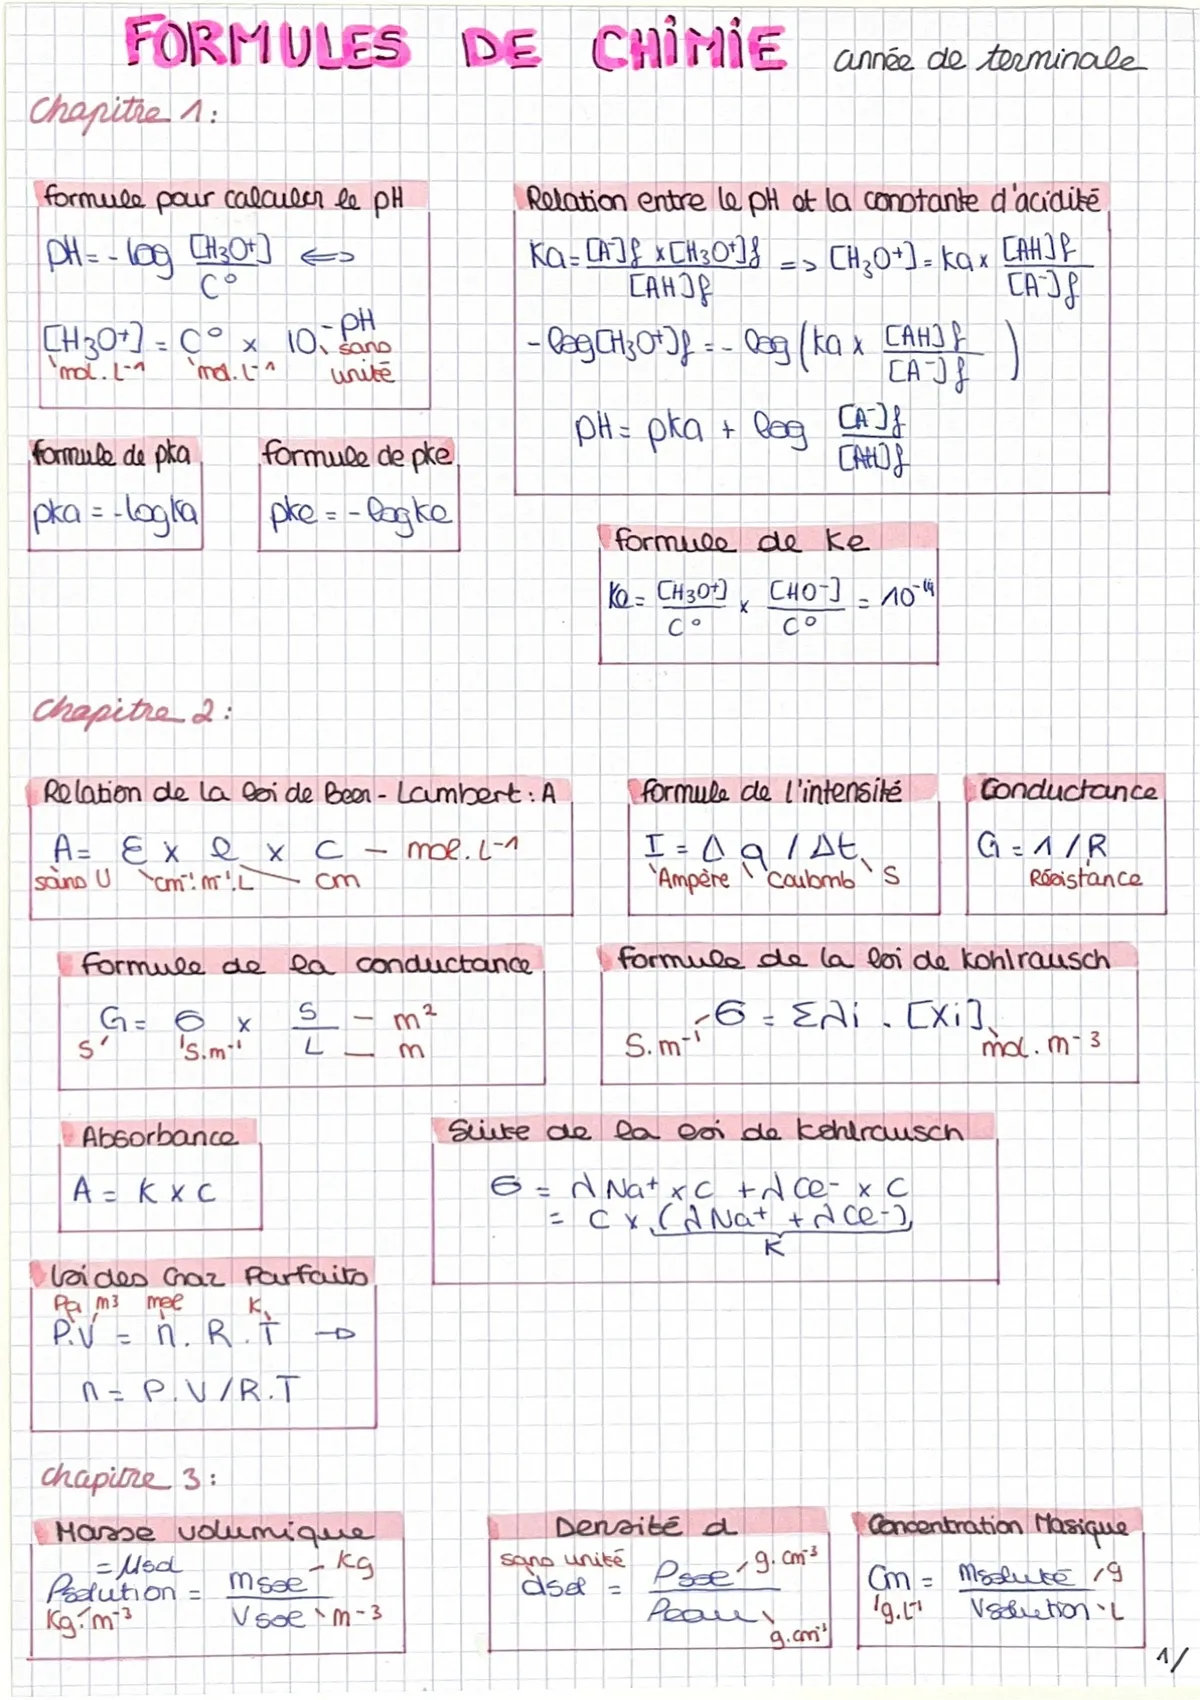 FORMULES DE CHIMIE année de terminale
Chapitre 1:
formule pour calculer le pH
pH = - log [H3O+] / C° <=>
[H3O+] = C° x 10^-pH
mol.L-1 mol.L-1 sans unité
Relation entre le pH et la constante d'acidité
Ka = [A-]f x [H3O+]f / [AH]f => [H3O+] = ka x [AH]f / [A-]f
- log [H3O+]f = - log (ka x [AH]f / [A-]f)
pH = pka + log [A-]f / [AH]f
formule de pka
pka = - log ka
formule de pke
pke = - log ke
formule de Ke
Ke = [H3O+] / C° x [HO-] / C° = 10^-14
Chapitre 2:
Relation de la loi de Beer - Lambert : A
A = ε x l x C - mol.L-1
sans U cm-1.m-1.L cm
formule de l'intensité
I = Δ q / Δt
Ampère Coulomb S
Conductance
G = 1 / R
Résistance
formule de la conductance
G = σ x S / L - m² - m
S S.m-1
formule de la loi de kohlrausch
σ = Σλi . [Xi]
S.m-1 mol.m-3
Absorbance
A = K x C
Suite de la loi de kohlrausch
σ = λ Na+ x C + λ Cl- x C
= C x (λ Na+ + λ Cl-)
K
Loi des Gaz Parfaits
Pa m3 mol K
P.V = n. R. T →
n = P.V / R.T
chapitre 3:
Masse volumique
= μsol
ρsolution = msol / Vsol
Kg.m-3 kg m-3
Densité d
sans unité
dsol = ρsol / ρeau
g.cm-3
g.cm-3
Concentration Masique
Cm = Msoluté / Vsolution
g.L-1 g L
1/